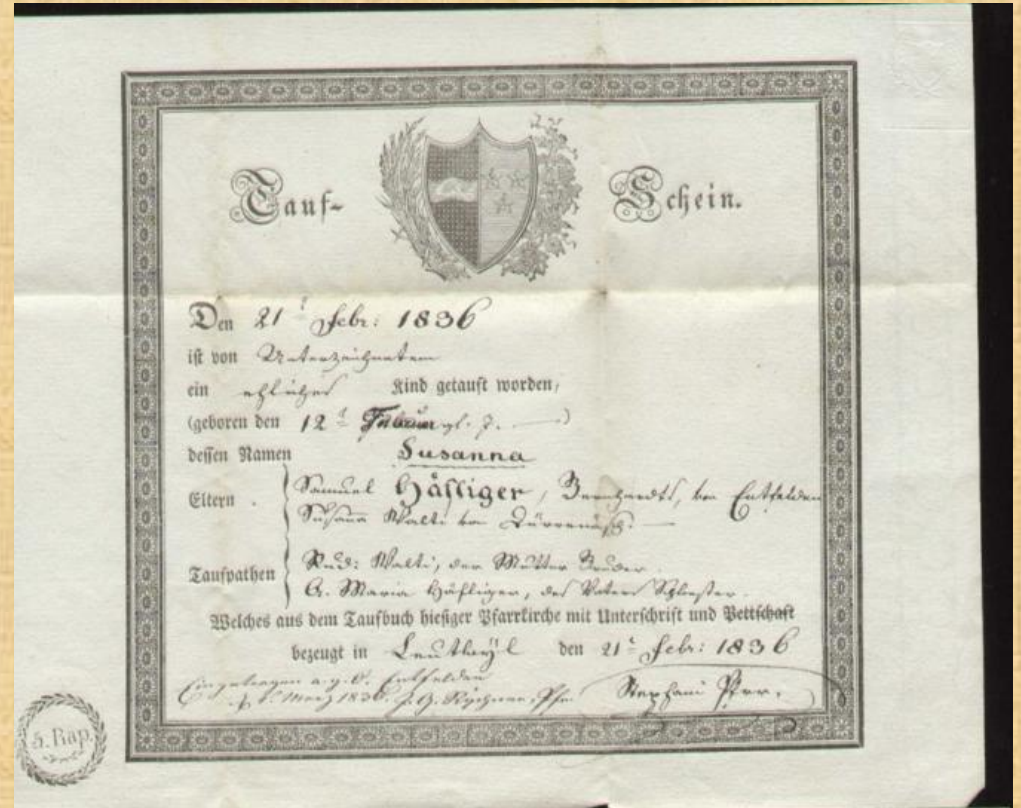 Tauf- Schein.
Den 21t Febr: 1836
ist von Unterzeichnetem
ein ehliches Kind getauft worden,
(geboren den 12t
dessen Namen Susanna
Eltern . Samuel Häfliger, Bernhardts, von Entfelden
Susanna Walti von Dürrenäsch.
Taufpathen Rud: Walti, der Mutter Bruder.
A. Maria Häfliger, des Vaters Schwester.
Welches aus dem Taufbuch hiesiger Pfarrkirche mit Unterschrift und Pettschaft
bezeugt in Leutwyl den 21t Febr: 1836
Eingetragen Entfelden
März 1836. Pfr. Stephani Pfrr.
5. Rap.